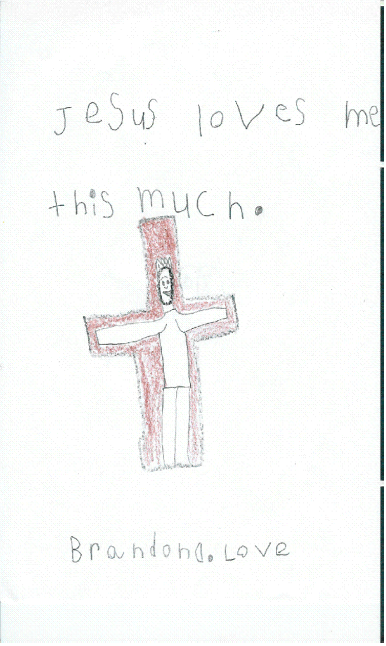 Jesus loves me
this much.
Brandond. Love